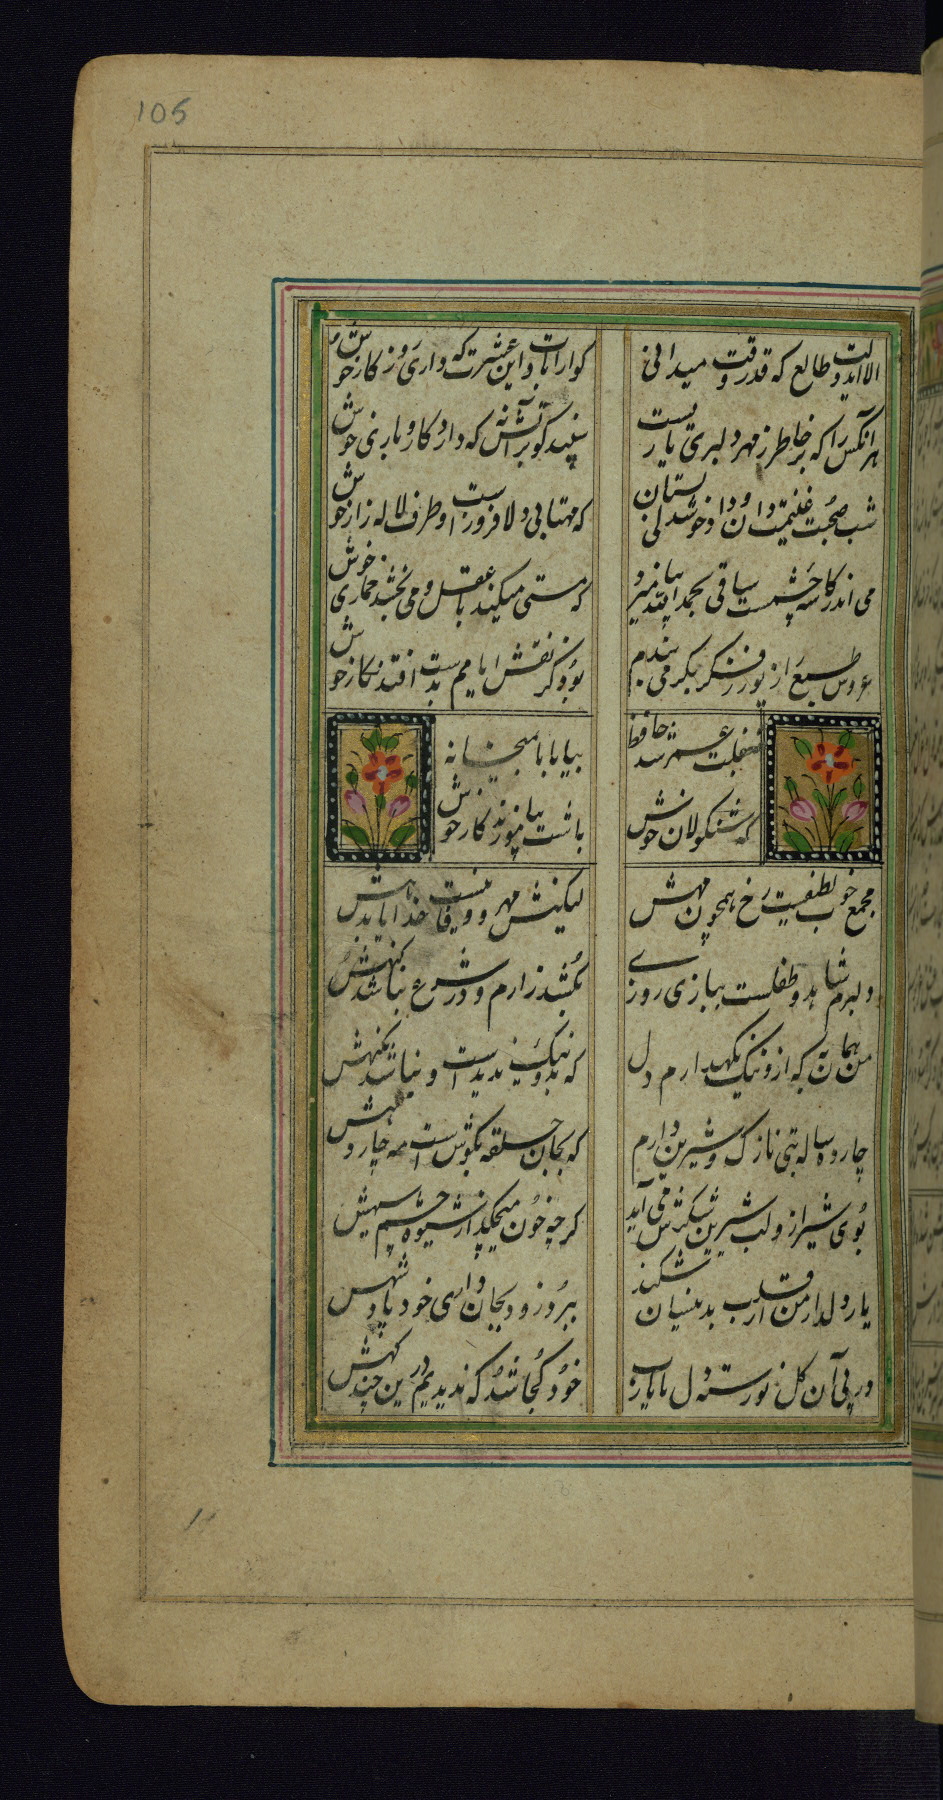 105
الا ای دولت طالع که قدر وقت میدانی
کوارا بادت این عشرت که داری روزکار خوش
هر آنکس را که بر خاطر ز مهر دلبری باریست
سپندی کو بر آتش نه که دارد کار و باری خوش
شب صحبت غنیمت دان و داد خوشدلی بستان
که مهتابی دلافروز است و طرف لاله زار خوش
می اندر کاسه چشمست ساقی بنامیزد
که مستی میکند با عقل و می بخشد خماری خوش
عروس طبع را زیور ز فکر بکر می بندم
بود کز نقش ایامم بدست افتد نکار خوش
بغفلت عمر شد حافظ
بیا با ما بمیخانه
که شنکولان خوش
باشت بیاموزند کار خوش
مجمع خوبی و لطفست رخ همچون مهش
لیکنش مهر و وفا نیست خدایا بدهش
دلبرم شاهد و طفلست ببازی روزی
بکشد زارم و در شرع نباشد کنهش
من همان به که ازو نیک نکهدارم دل
که بد و نیک ندیدست و نباشد نکهش
چارده ساله بتی نازک و شیرین دارم
که بجان حلقه بکوش است مه چاردهش
بوی شیر از لب شیرین شکرش می آید
کرچه خون میچکد از شیوه چشم سیهش
یار دلدار من ار قلب بدینسان شکند
ببرد زود بجان داری خود پادشهش
در پی آن کل نورسته دل ما یا رب
خود کجا شد که ندیدیم درین چند کهش